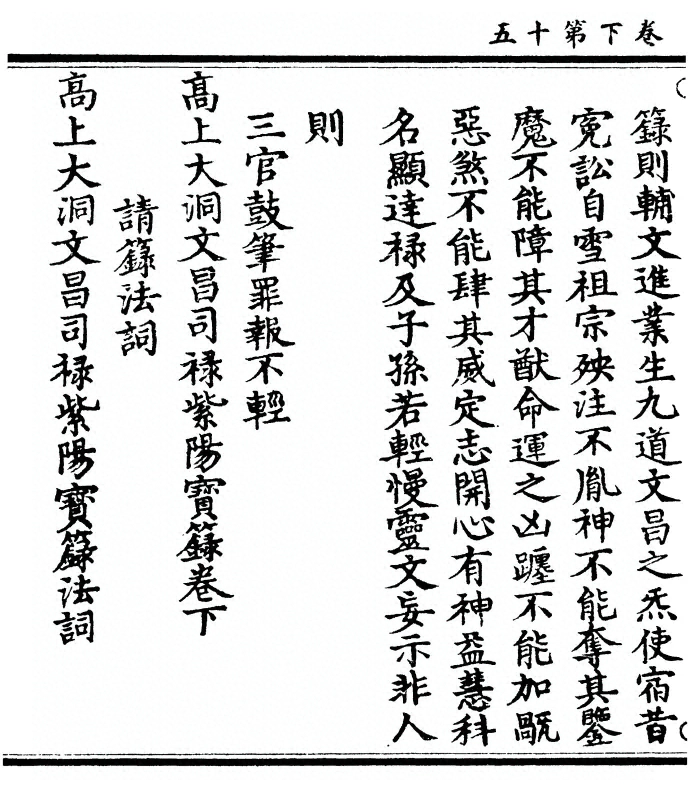 卷下第十五
籙則輔文進業生九道文昌之炁使宿昔
寃訟自雪祖宗殃注不胤神不能奪其鑒
魔不能障其才猷命運之凶躔不能加
惡煞不能肆其威定志開心有神益慧科
名顯達禄及子孫若輕慢靈文妄示非人
則
三官鼓筆罪報不輕
髙上大洞文昌司禄紫陽寶籙卷下
請籙法詞
髙上大洞文昌司禄紫陽寶籙法詞